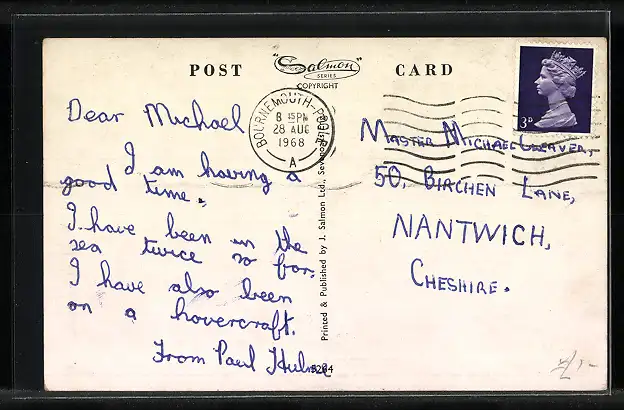 POST "Salmon" CARD
SERIES
COPYRIGHT
BOURNEMOUTH-POOLE
8 15PM
28 AUG
1968
A
3D
Dear Michael
I am having a
good time.
I have been in the
sea twice so far.
I have also been
on a hovercraft.
From Paul
MASTER MICHAEL CLEAVER,
50, BIRCHEN LANE,
NANTWICH,
CHESHIRE.
Printed & Published by J. Salmon Ltd., Sevenoaks